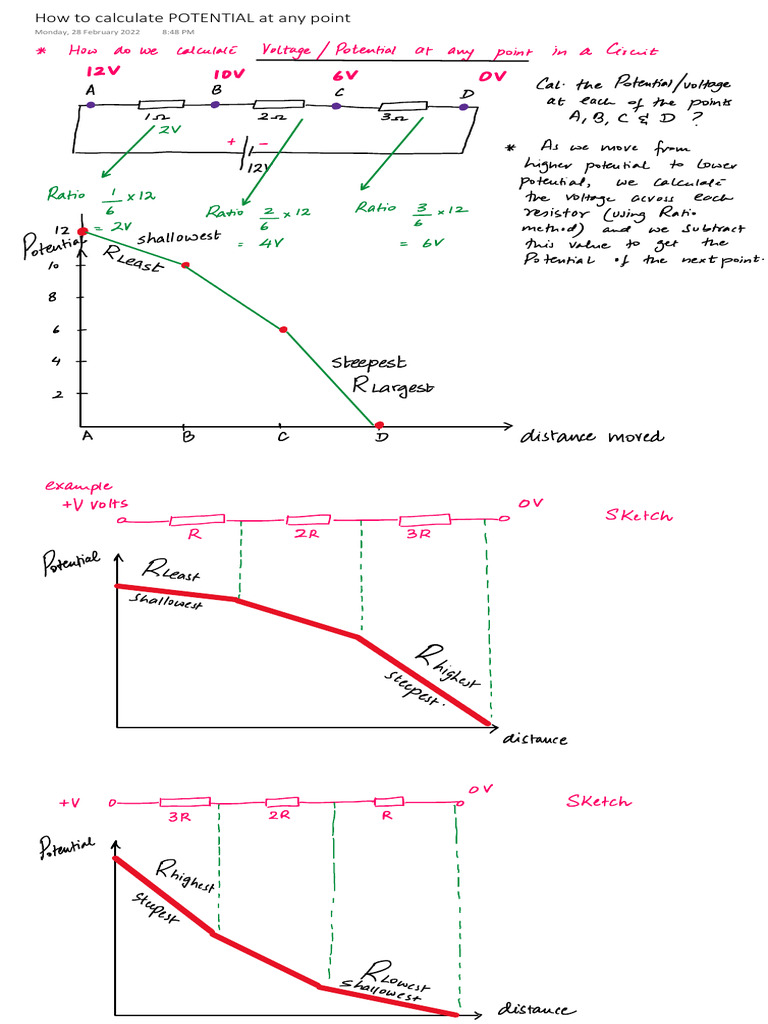 How to calculate POTENTIAL at any point
Monday, 28 February 2022 8:48 PM
* How do we calculate Voltage/Potential at any point in a Circuit
12V 10V 6V 0V
A B C D
1Ω 2Ω 3Ω
2V
+ -
12V
Cal. the Potential/voltage
at each of the points
A, B, C & D ?
* As we move from
higher potential to lower
potential, we calculate
the voltage across each
resistor (using Ratio
method) and we subtract
this value to get the
Potential of the next point.
Ratio 1/6 x 12
= 2V
Ratio 2/6 x 12
= 4V
Ratio 3/6 x 12
= 6V
Potential
12
10
8
6
4
2
shallowest
R Least
steepest
R Largest
A B C D
distance moved
example
+V volts
0V
R 2R 3R
SKetch
Potential
R Least
shallowest
R highest
steepest.
distance
+V
0V
3R 2R R
SKetch
Potential
R highest
steepest
R Lowest
shallowest
distance